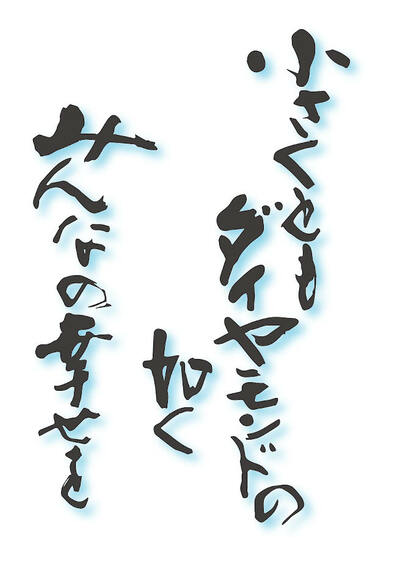 小さくとも
ダイヤモンドの
如く
みんなの幸せを